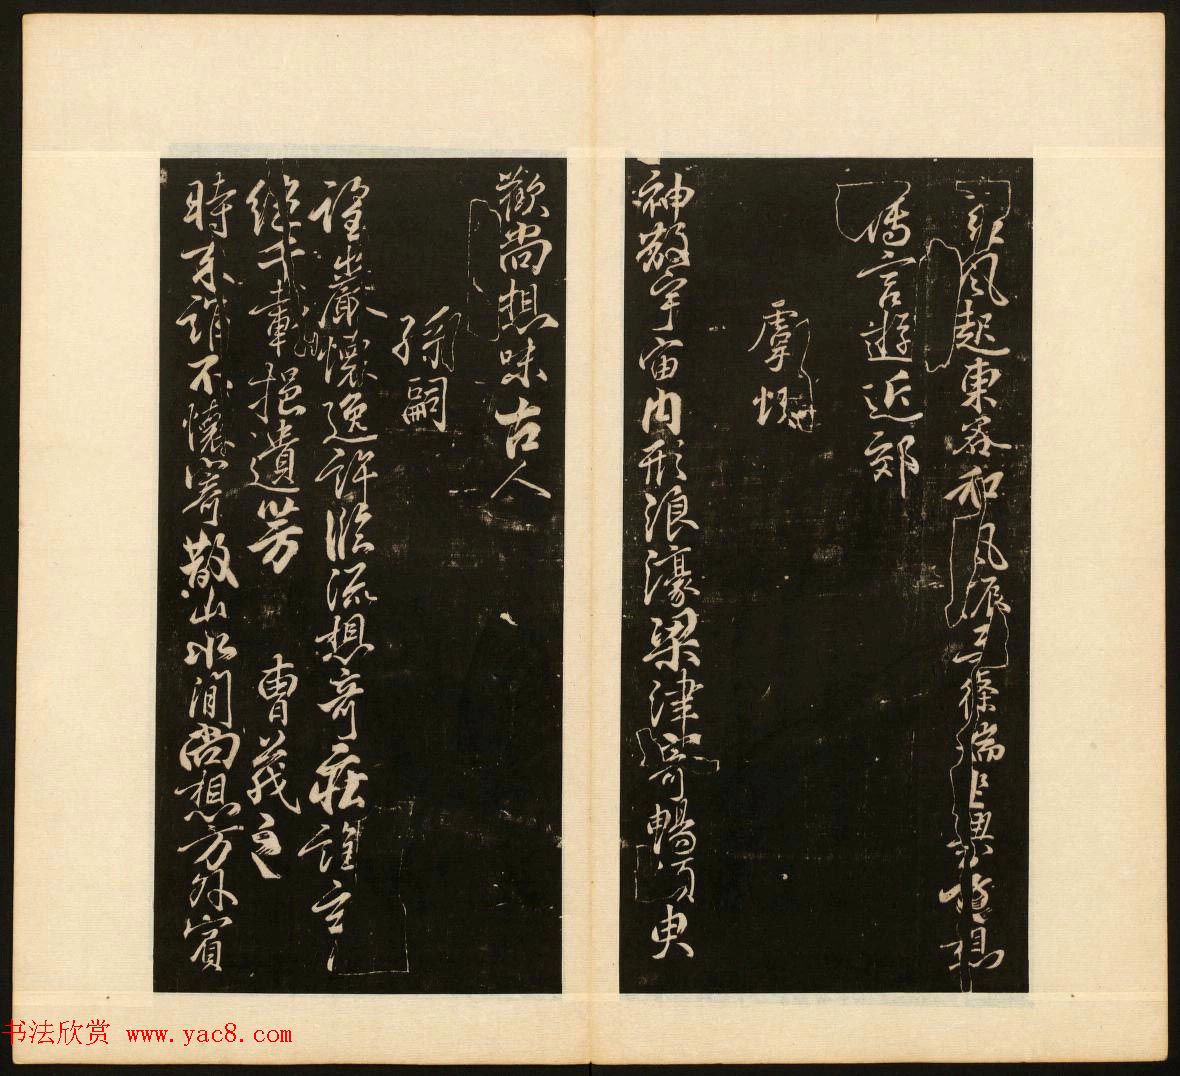 風起東谷和風振柔條端坐興遠想
薄言遊近郊
虞悅
神散宇宙內形浪濠梁津寄暢須臾
歡尚想味古人
孫嗣
望巖懷逸許臨流想奇莊誰言
絕千載挹遺芳 曹茂之
時來誰不懷寄散山水間尚想方外賓
书法欣赏 www.yac8.com